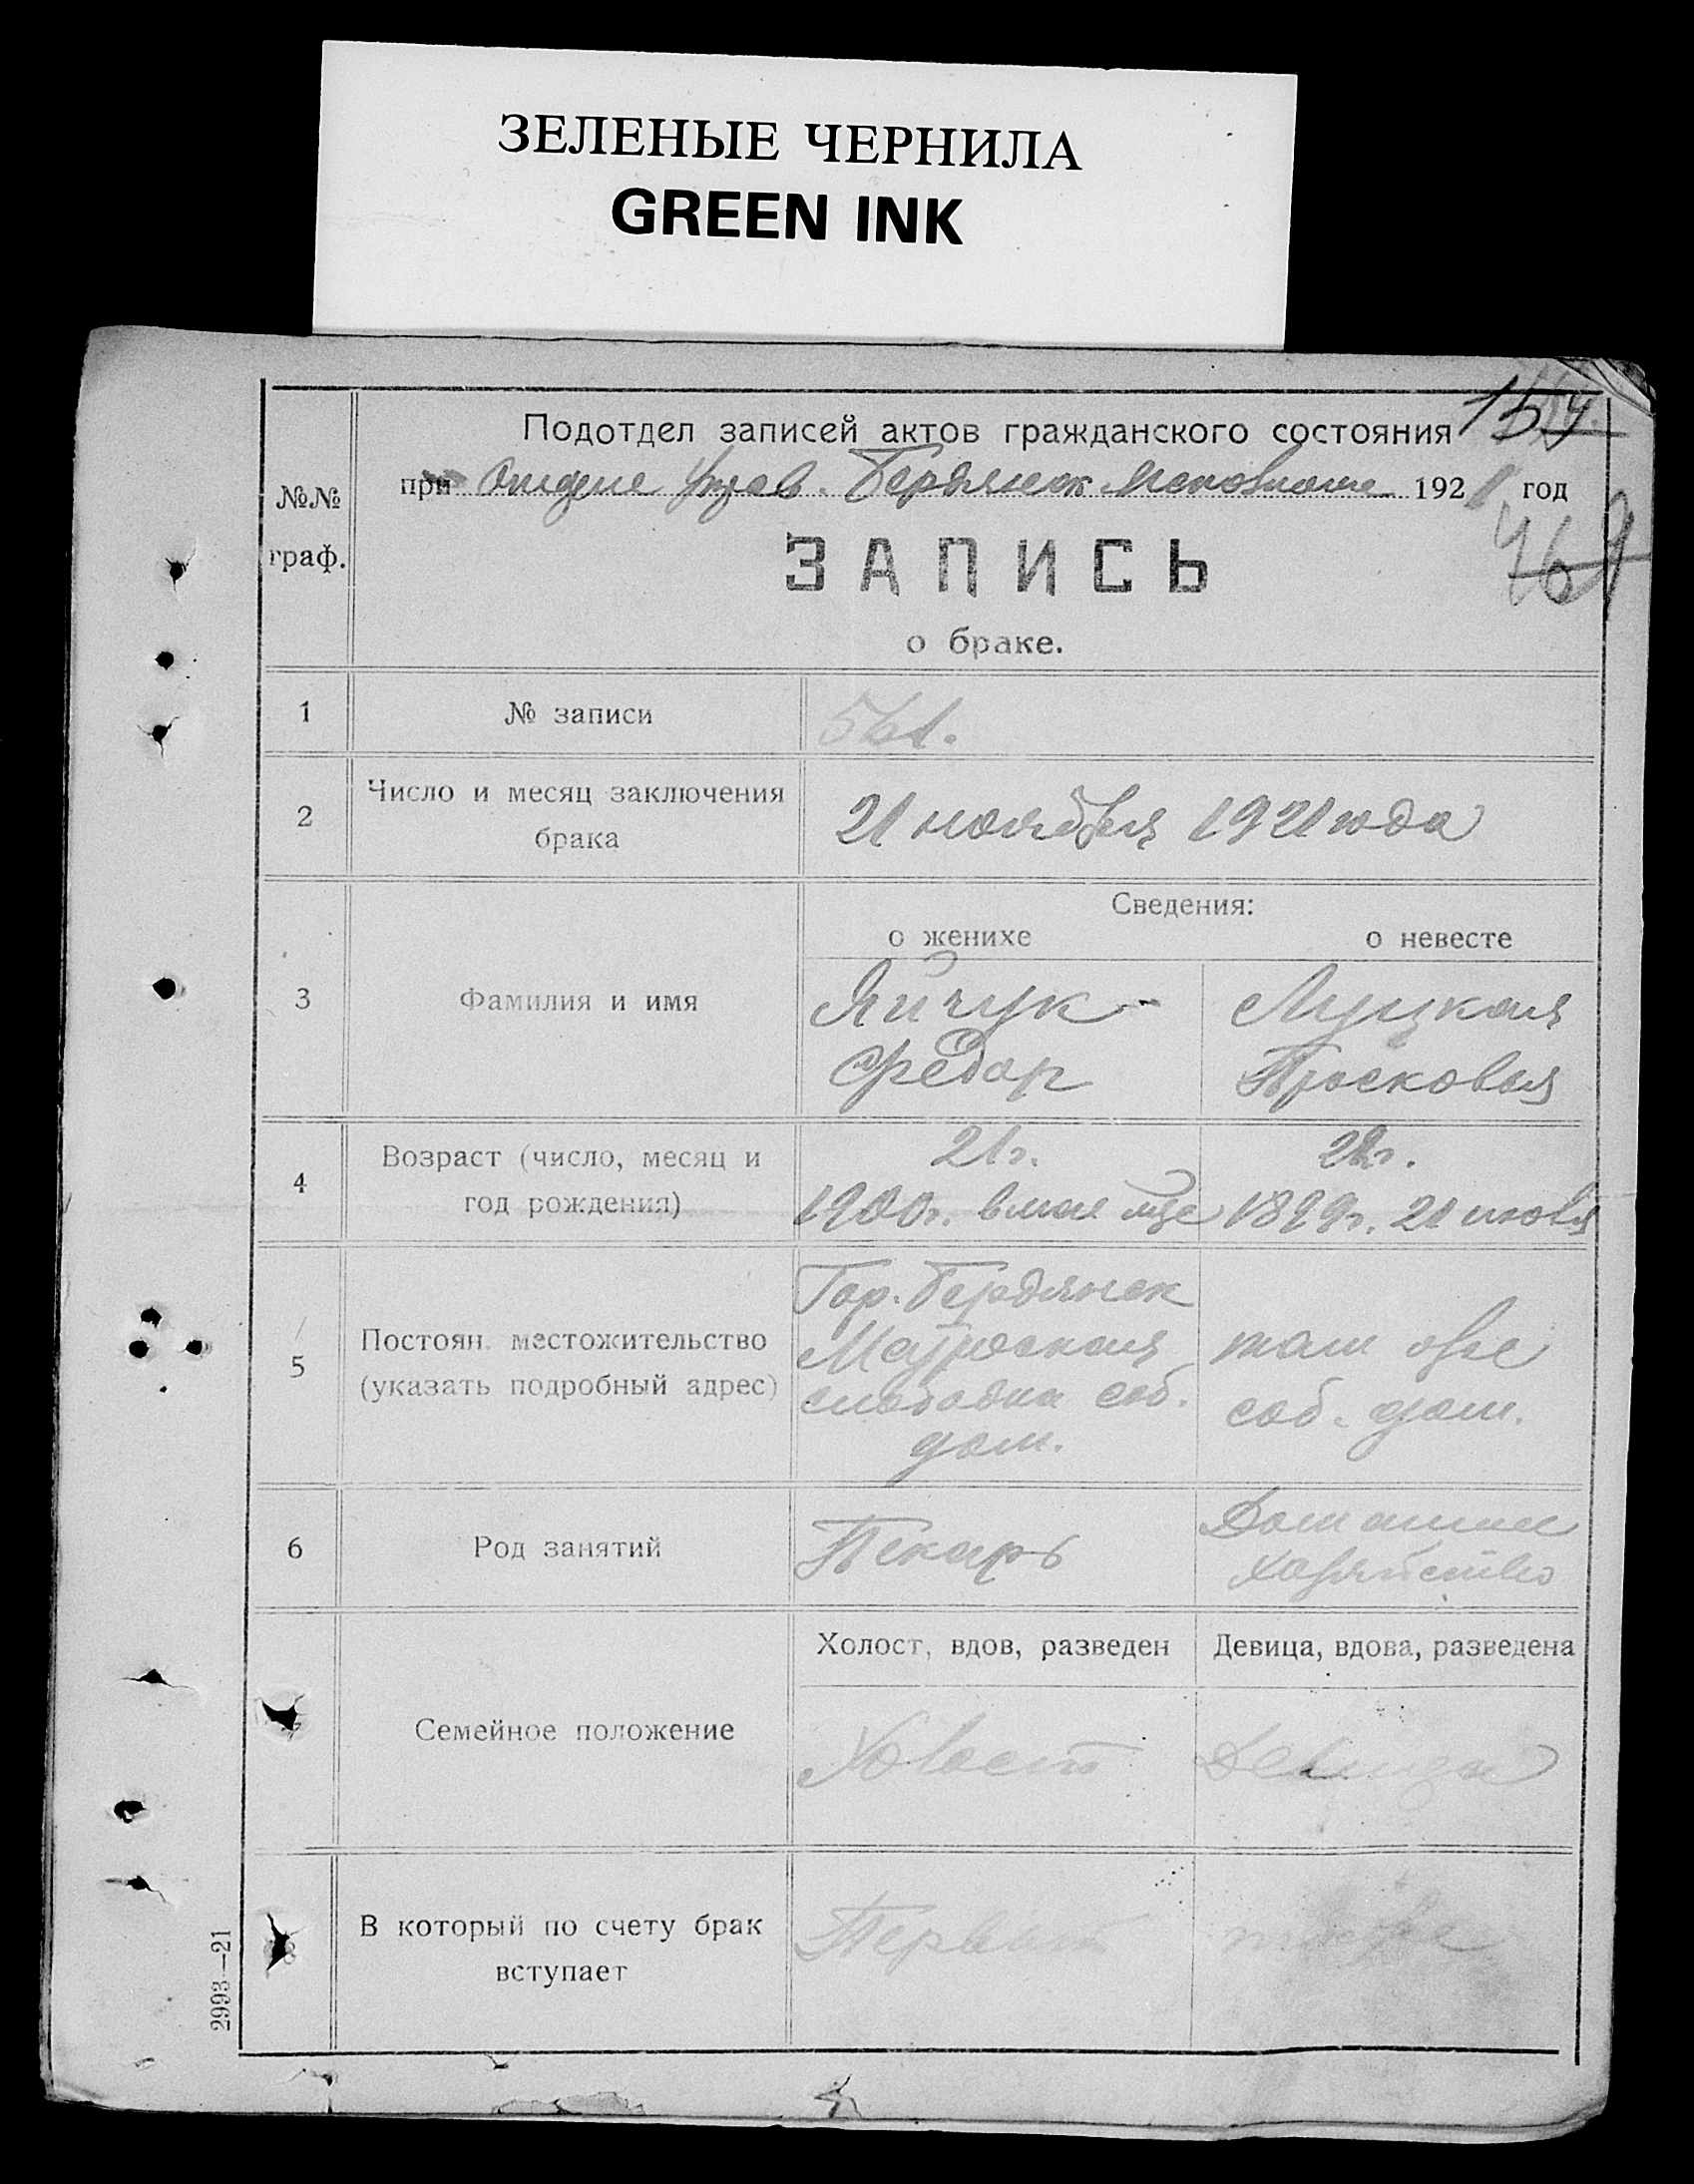 ЗЕЛЕНЫЕ ЧЕРНИЛА
GREEN INK
Подотдел записей актов гражданского состояния
при Отделе Управ. Бердянск Исполкома 1921 год
№№
граф.
ЗАПИСЬ
о браке.
1 № записи 561.
2 Число и месяц заключения
брака
21 ноября 1921 года
Сведения:
о женихе о невесте
3 Фамилия и имя
Яйчук Луцкая
Федор Просковья
4 Возраст (число, месяц и
год рождения)
21 г. 22 г.
1900 г. в мая м-це 1899 г. 21 июля
5 Постоян. местожительство
(указать подробный адрес)
Гор. Бердянск
слободка соб.
дом.
там же
соб. дом.
6 Род занятий
Пекарь
Домашнее
хозяйство
Холост, вдов, разведен Девица, вдова, разведена
Семейное положение
Холост Девица
8 В который по счету брак
вступает
Первый тоже
2993—21